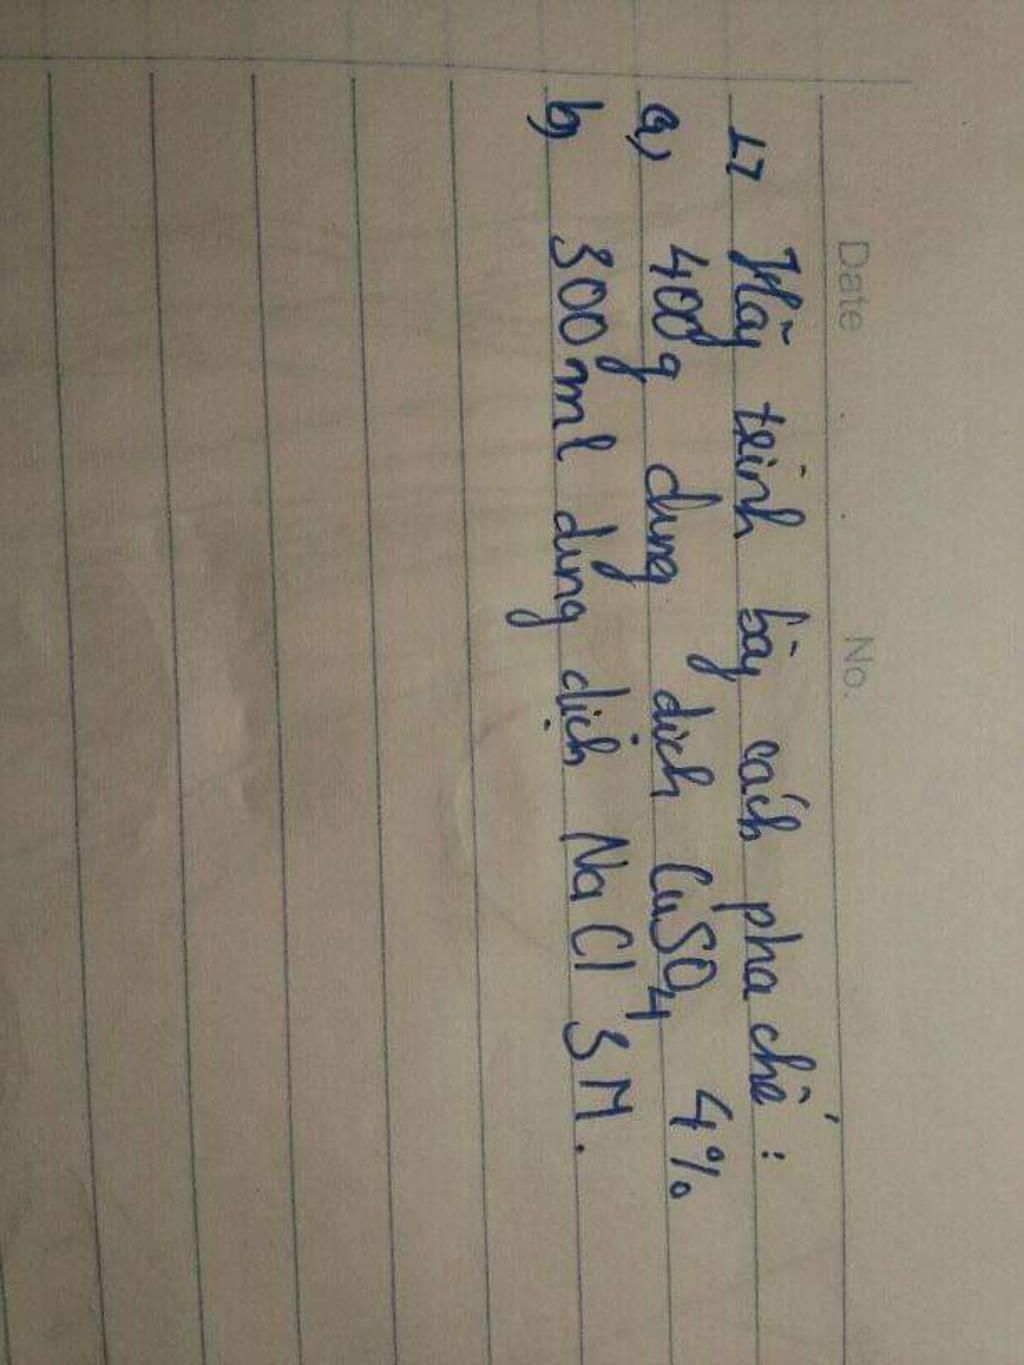 Date No.
1, Hãy trình bày cách pha chế :
a, 400g dung dịch CuSO4 4%
b, 300ml dung dịch NaCl 3M.